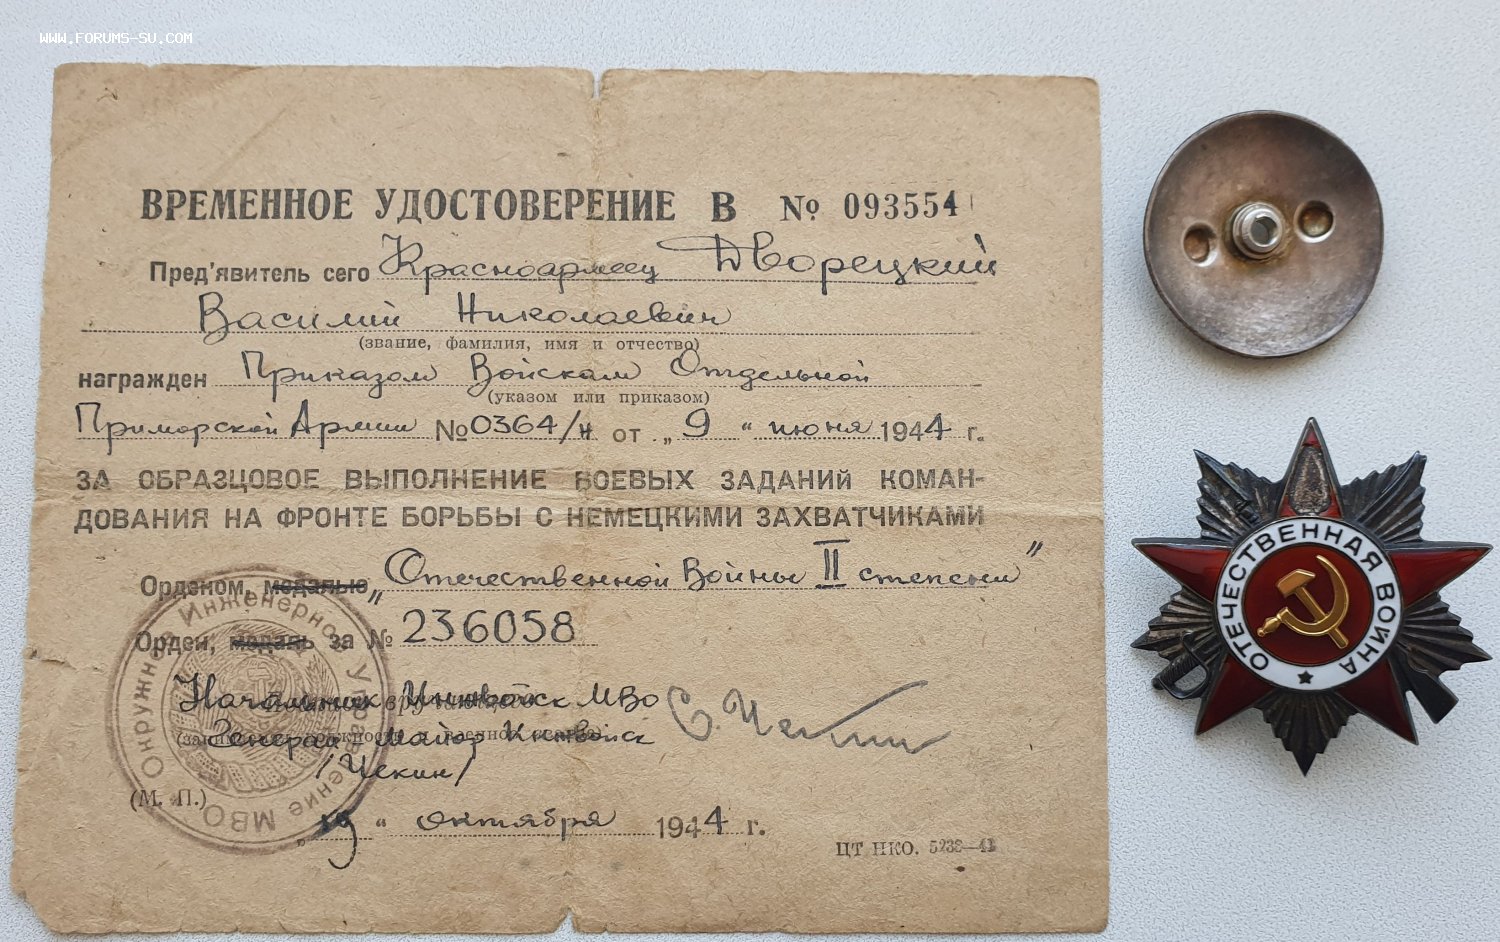 WWW.FORUMS-SU.COM
ВРЕМЕННОЕ УДОСТОВЕРЕНИЕ В № 093554
Пред'явитель сего Красноармеец Дворецкий
Василий Николаевич
(звание, фамилия, имя и отчество)
награжден Приказом Войскам Отдельной
(указом или приказом)
Приморской Армии № 0364/н от „9" июня 1944 г.
ЗА ОБРАЗЦОВОЕ ВЫПОЛНЕНИЕ БОЕВЫХ ЗАДАНИЙ КОМАН-
ДОВАНИЯ НА ФРОНТЕ БОРЬБЫ С НЕМЕЦКИМИ ЗАХВАТЧИКАМИ
Орденом, медалью „Отечественной Войны II степени"
Орден, медаль за № 236058
Начальник Инжвойск МВО
Генерал-майор Инжвойск
/Чекин/
(М. П.)
„19" октября 1944 г.
ЦТ НКО. 5238—43
Окружное Инженерное Управление МВО
ОТЕЧЕСТВЕННАЯ ВОЙНА